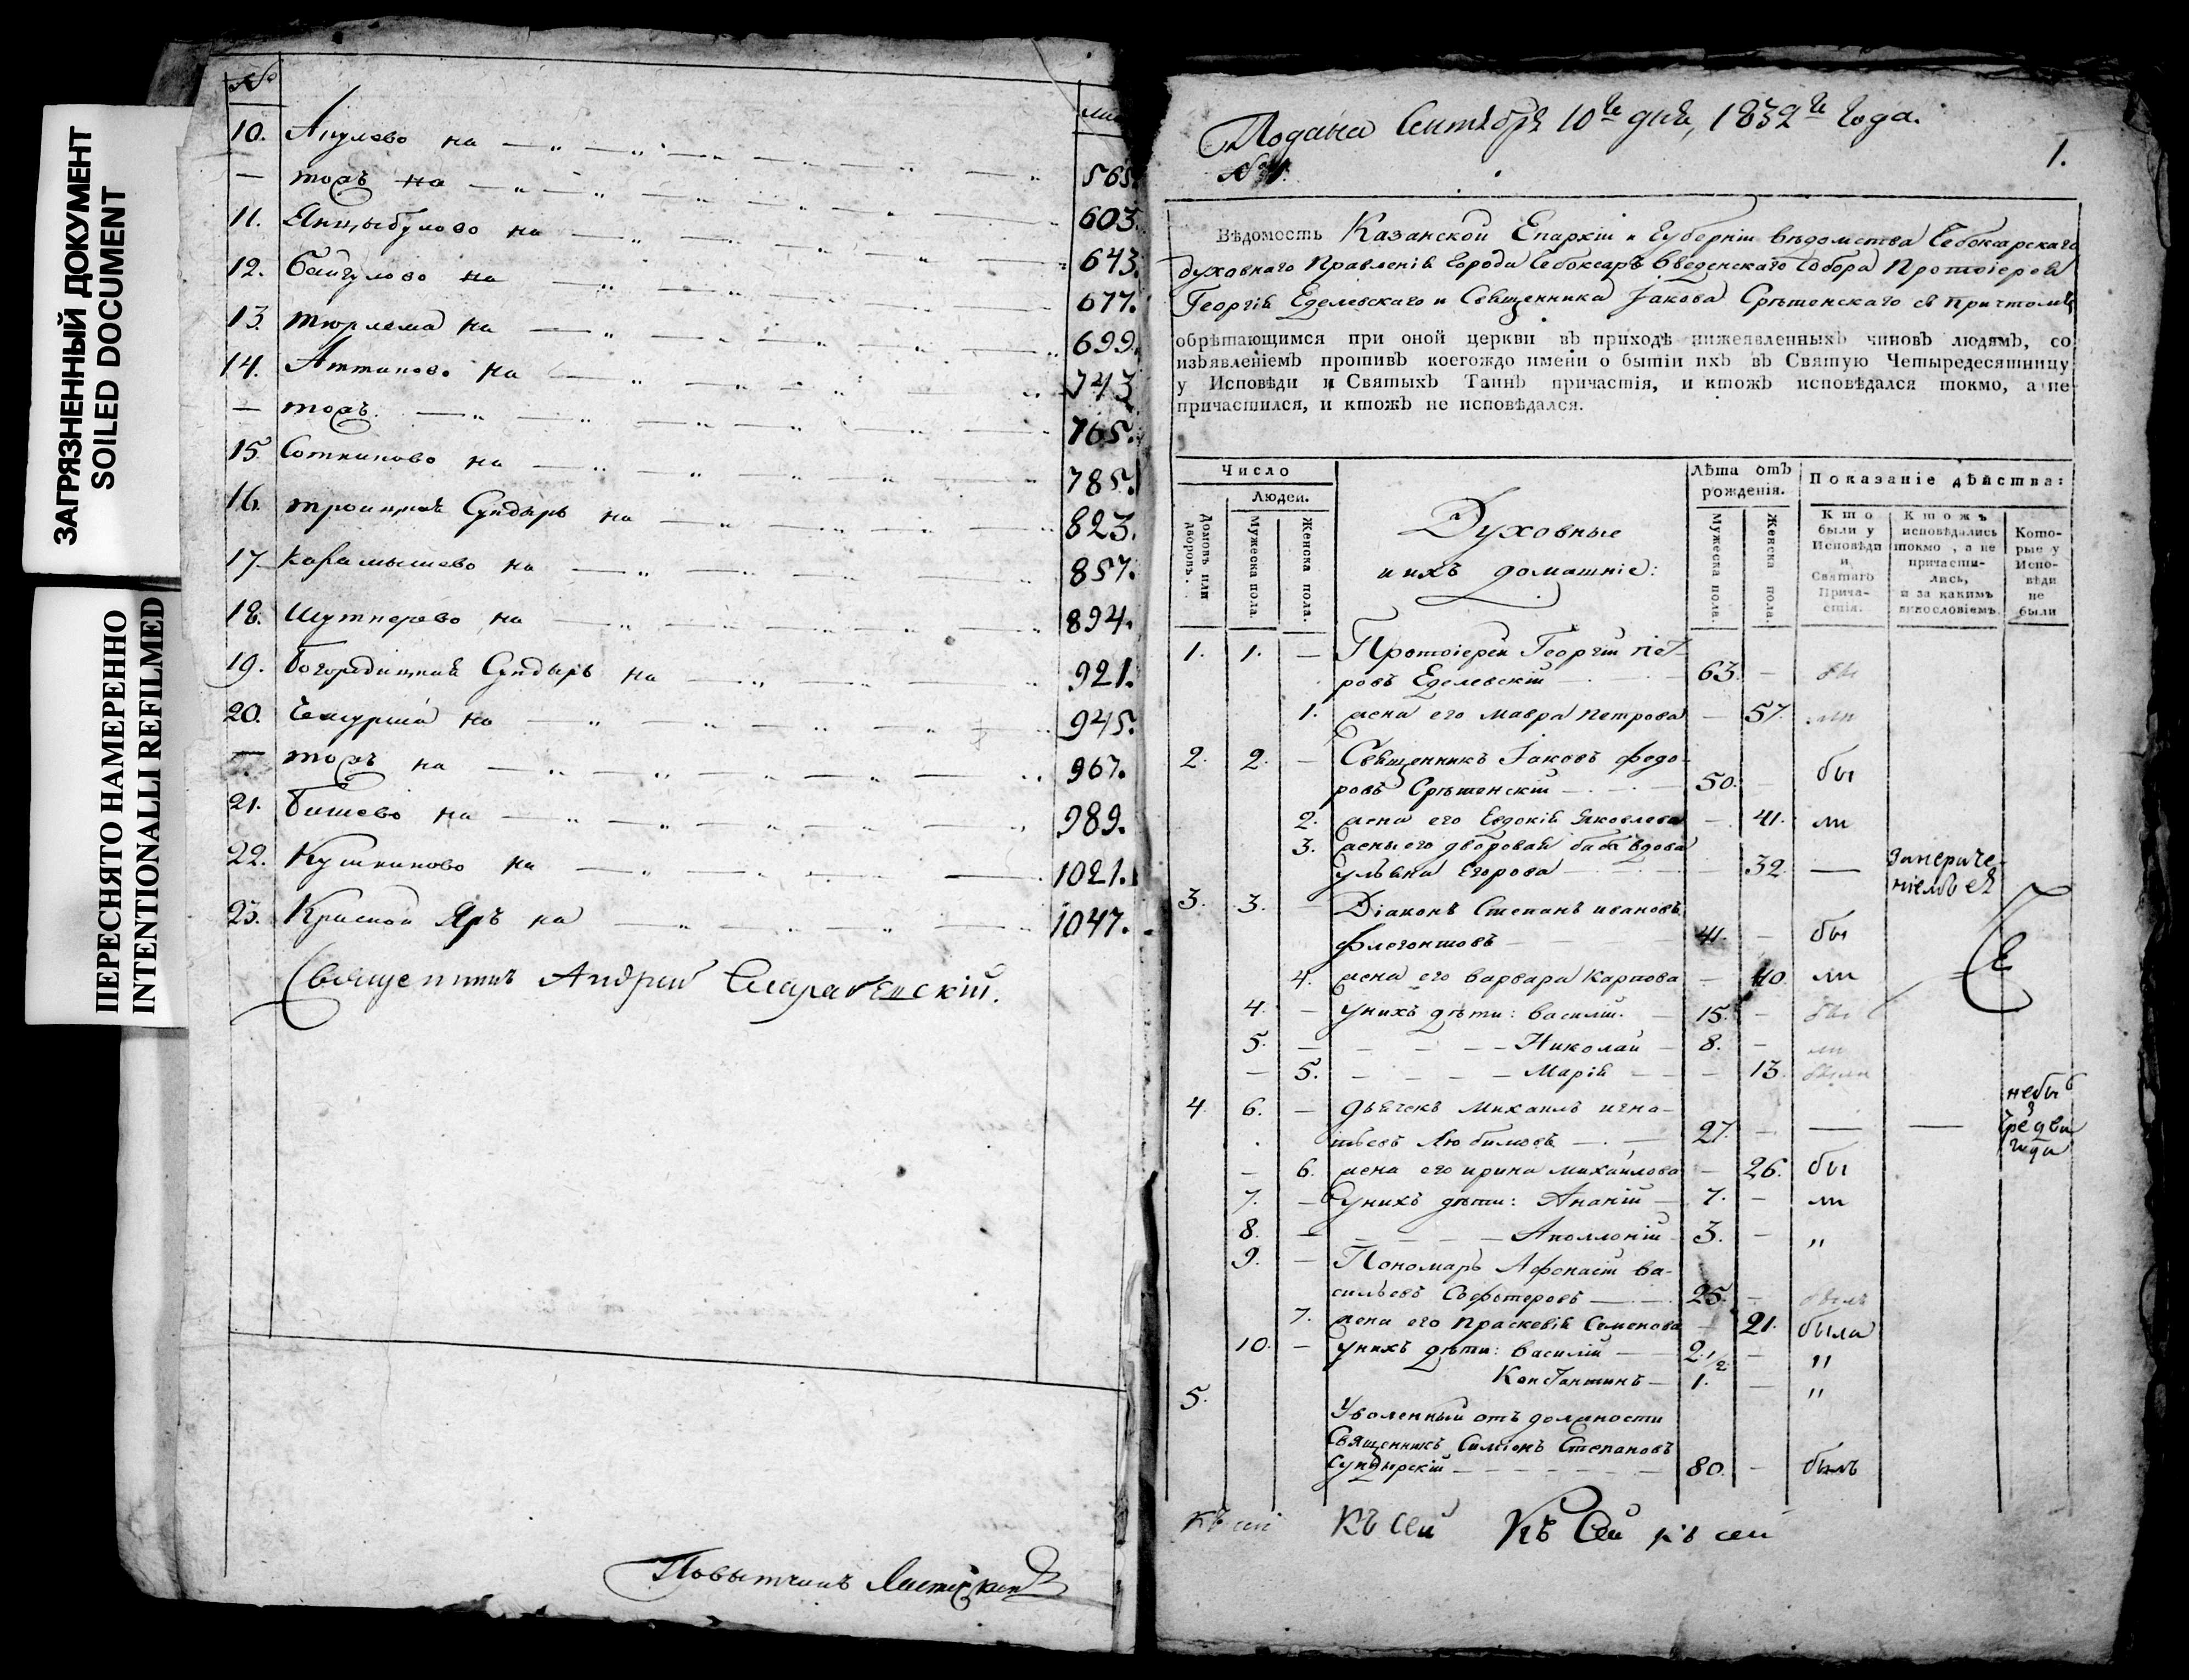 ЗАГРЯЗНЕННЫЙ ДОКУМЕНТ
SOILED DOCUMENT
ПЕРЕСНЯТО НАМЕРЕННО
INTENTIONALLI REFILMED
№
10. Акулево на 565.
— тожъ на 603.
11. Янцыбулово на 643.
12. Байгулово на 677.
13. тюрлема на 699.
14. Аттиково на 743
— тожъ 765.
15 Сотниково на 785.
16. троицкой Сундырь на 823.
17 Карамышево на 857.
18. Шутнерево на 894.
19. богородицкой Сундырь на 921.
20. Чемурша на 945.
— тожъ на 967.
21. бишево на 989.
22. Кушниково на 1021.
23. Красной Яръ на 1047.
Священникъ Андрей
Повытчикъ
Подана Сентября 10го дня, 1832го года.
№ 1.
1.
Вѣдомость Казанской Епархіи и Губерніи вѣдомства Чебоксарскаго
духовнаго Правленія города Чебоксаръ Введенскаго Собора Протоіерея
Георгія Еделевскаго и Священника Іакова Срѣтенскаго съ причтомъ
обрѣтающимся при оной церкви въ приходѣ нижеявленныхъ чиновъ людямъ, со
изъявленіемъ противъ коегождо имени о бытіи ихъ въ Святую Четыредесятницу
у Исповѣди и Святыхъ Таинъ причастія, и ктожъ исповѣдался токмо, а не
причастился, и ктожъ не исповѣдался.
Число
Людей.
Домовъ или дворовъ.
Мужеска пола.
Женска пола.
Духовные
и ихъ домашніе:
Лѣта отъ
рожденія.
Мужеска пола.
Женска пола.
Показаніе дѣйства:
Кто
были у
Исповѣди
и
Святаго
Прича-
стія.
Ктожъ
исповѣдались
токмо, а не
причасти-
лись,
и за какимъ
винословіемъ.
Кото-
рые у
Испо-
вѣди
не
были
1. 1. — Протоіерей Георгій Пет
ровъ Еделевскій 63. — бы
1. жена его мавра петрова — 57. ли
2. 2. — Священникъ Іаковъ федо-
ровъ Срѣтенскій 50. — бы
2. жена его Евдокія Яковлева — 41. ли
3. жены его дворовая баба вдова
Ульяна Егорова — 32. —
3. 3. — Діаконъ Степанъ ивановъ
флегонтовъ 41. — бы
4. жена его варвара карпова — 40. ли
4. — у нихъ дѣти: василій 15. — бы
5. — Николай 8. — ли
— 5. Марія — 13. были
4. 6. — дьячекъ михаилъ игна-
тьевъ Любимовъ 27. — — —
— 6. жена его ирина михайлова — 26. бы
7. — у нихъ дѣти: Ананій 7. — ли
8. — Аполлоній 3. — „
9. — Пономарь Афонасій ва-
сильевъ 25. — былъ
7. жена его прасковія Семенова — 21. была
10. — у нихъ дѣти: василій 2 1/2 — „
Константинъ 1. — „
5. Уволенный отъ должности
Священникъ Симеонъ Степановъ
Сундырскій 80. — былъ
Къ сей Къ сей Къ Сей къ сей